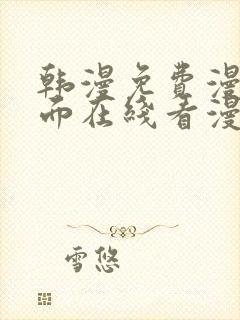 韩漫免费漫
而在线看漫
雪悠